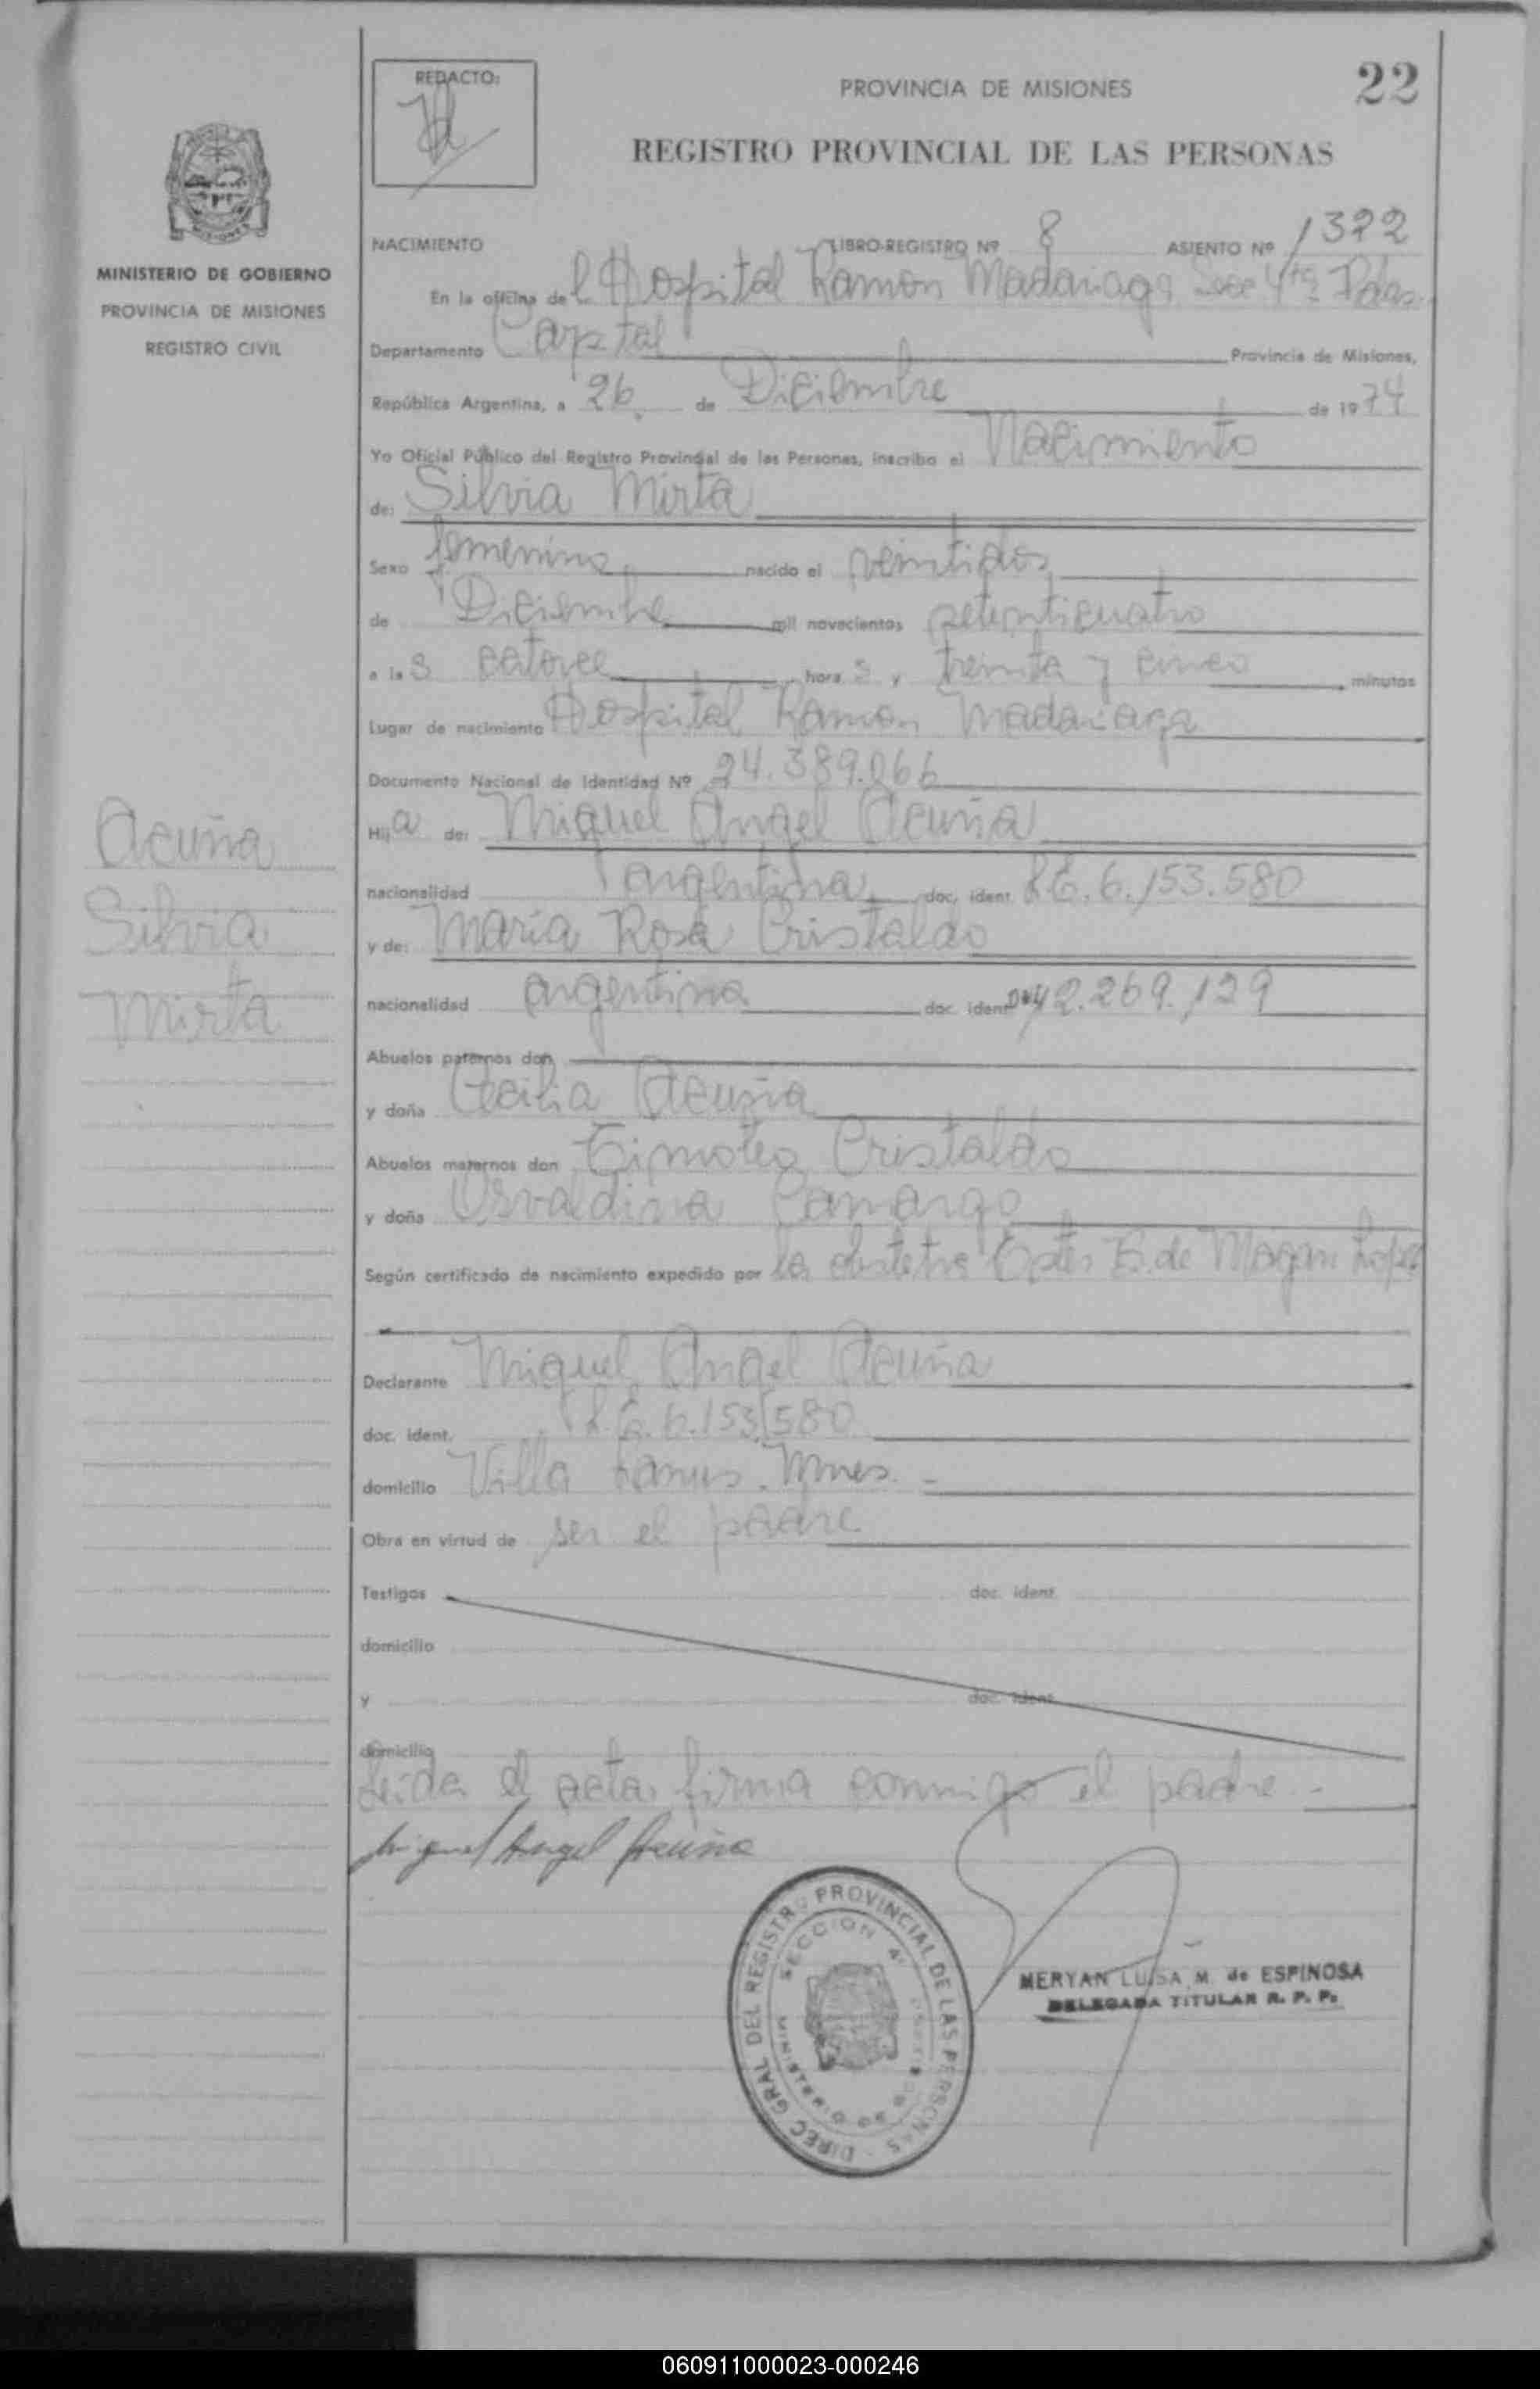 REDACTO:
PROVINCIA DE MISIONES
22
REGISTRO PROVINCIAL DE LAS PERSONAS
MINISTERIO DE GOBIERNO
PROVINCIA DE MISIONES
REGISTRO CIVIL
NACIMIENTO LIBRO-REGISTRO Nº 8 ASIENTO Nº 1322
En la oficina del Hospital Ramon Madariaga Secc 4ta Pdas.
Departamento Capital Provincia de Misiones,
República Argentina, a 26 de Diciembre de 1974
Yo Oficial Público del Registro Provincial de las Personas, inscribo el Nacimiento
de: Silvia Mirta
Sexo femenino nacido el veintidos
de Diciembre mil novecientos setenticuatro
a las catorce horas y treinta y cinco minutos
Lugar de nacimiento Hospital Ramon Madariaga
Documento Nacional de Identidad Nº 24.389.066
Hija de: Miguel Angel Acuña
nacionalidad argentina doc. ident. L.E. 6.153.580
y de: Maria Rosa Cristaldo
nacionalidad argentina doc. ident. 2.269.129
Abuelos paternos don
y doña Cecilia Acuña
Abuelos maternos don Timoteo Cristaldo
y doña Osvaldina Camargo
Según certificado de nacimiento expedido por la obstetra de
Declarante Miguel Angel Acuña
doc. ident. L.E. 6.153.580
domicilio Villa Lanus. Mnes. -
Obra en virtud de ser el padre
Testigos doc. ident.
domicilio
y doc. ident.
domicilio
Leida el acta firma conmigo el padre. -
Miguel Angel Acuña
Acuña
Silvia
Mirta
DIREC GRAL DEL REGISTRO PROVINCIAL DE LAS PERSONAS
SECCION 4ª
MINISTERIO DE GOBIERNO
MERYAN LUISA M. de ESPINOSA
DELEGADA TITULAR R. P. P.
060911000023-000246